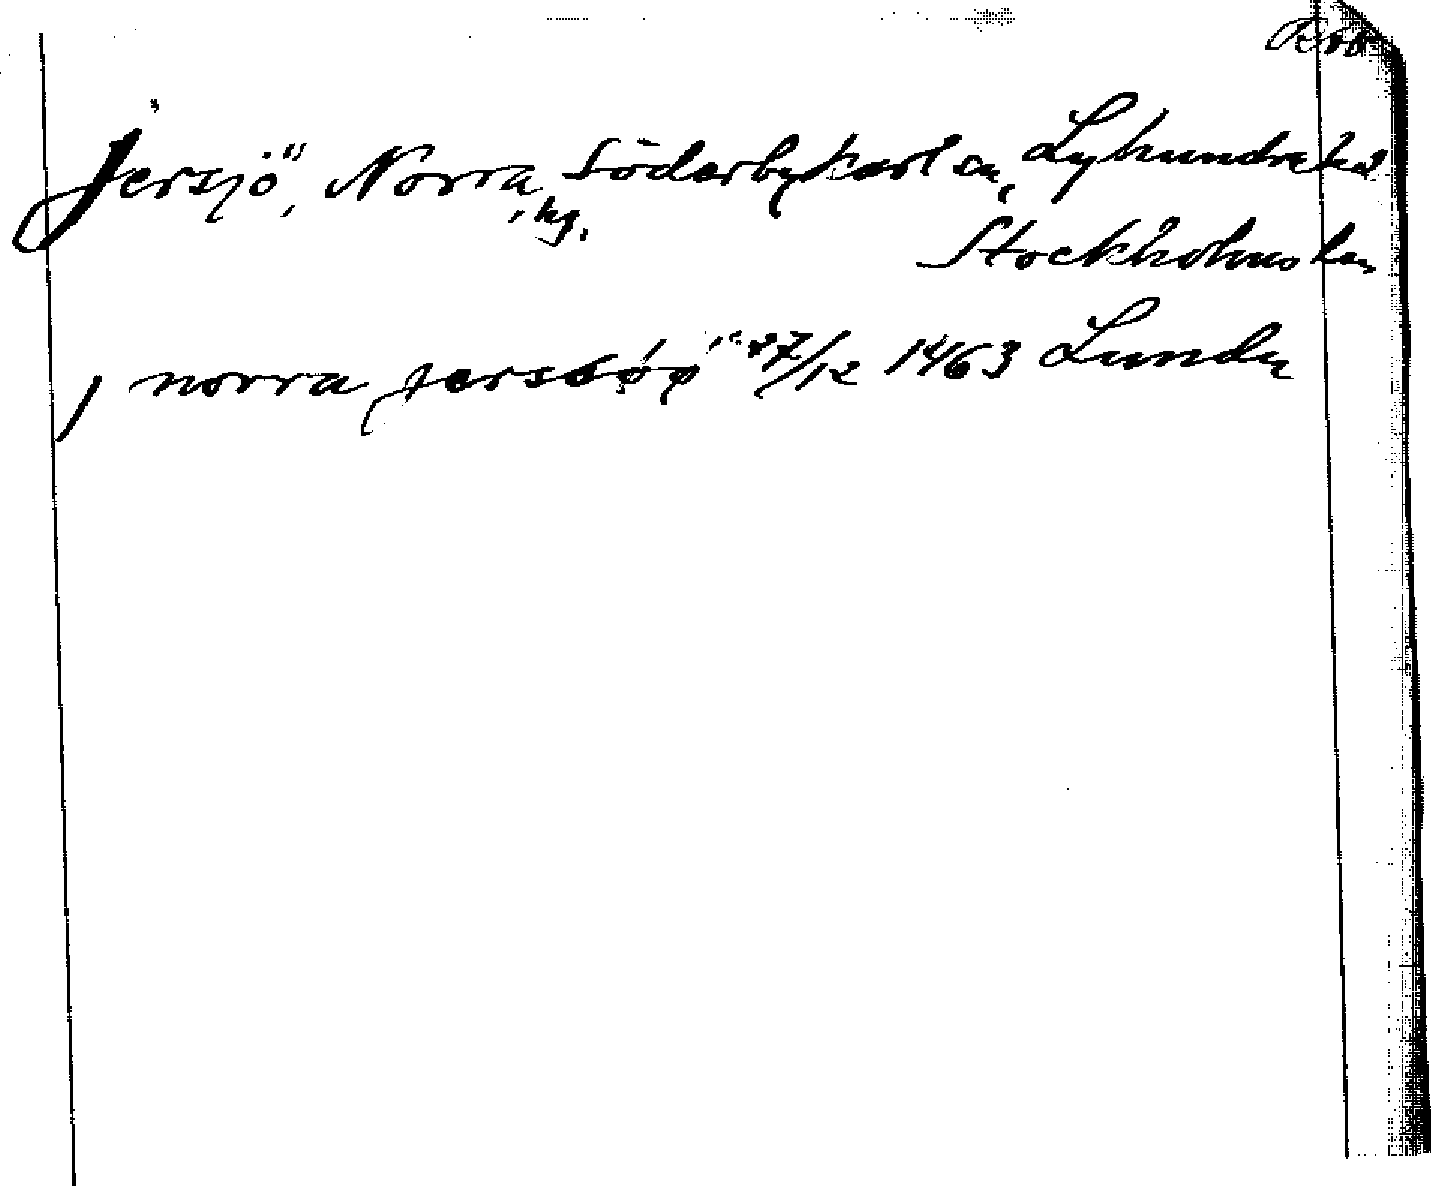 Jersjö, Norra, Söderbykarl sn, Lyhundra hd
, by.
Stockholms län
J norra Jersøø 27/12 1463 Lunda